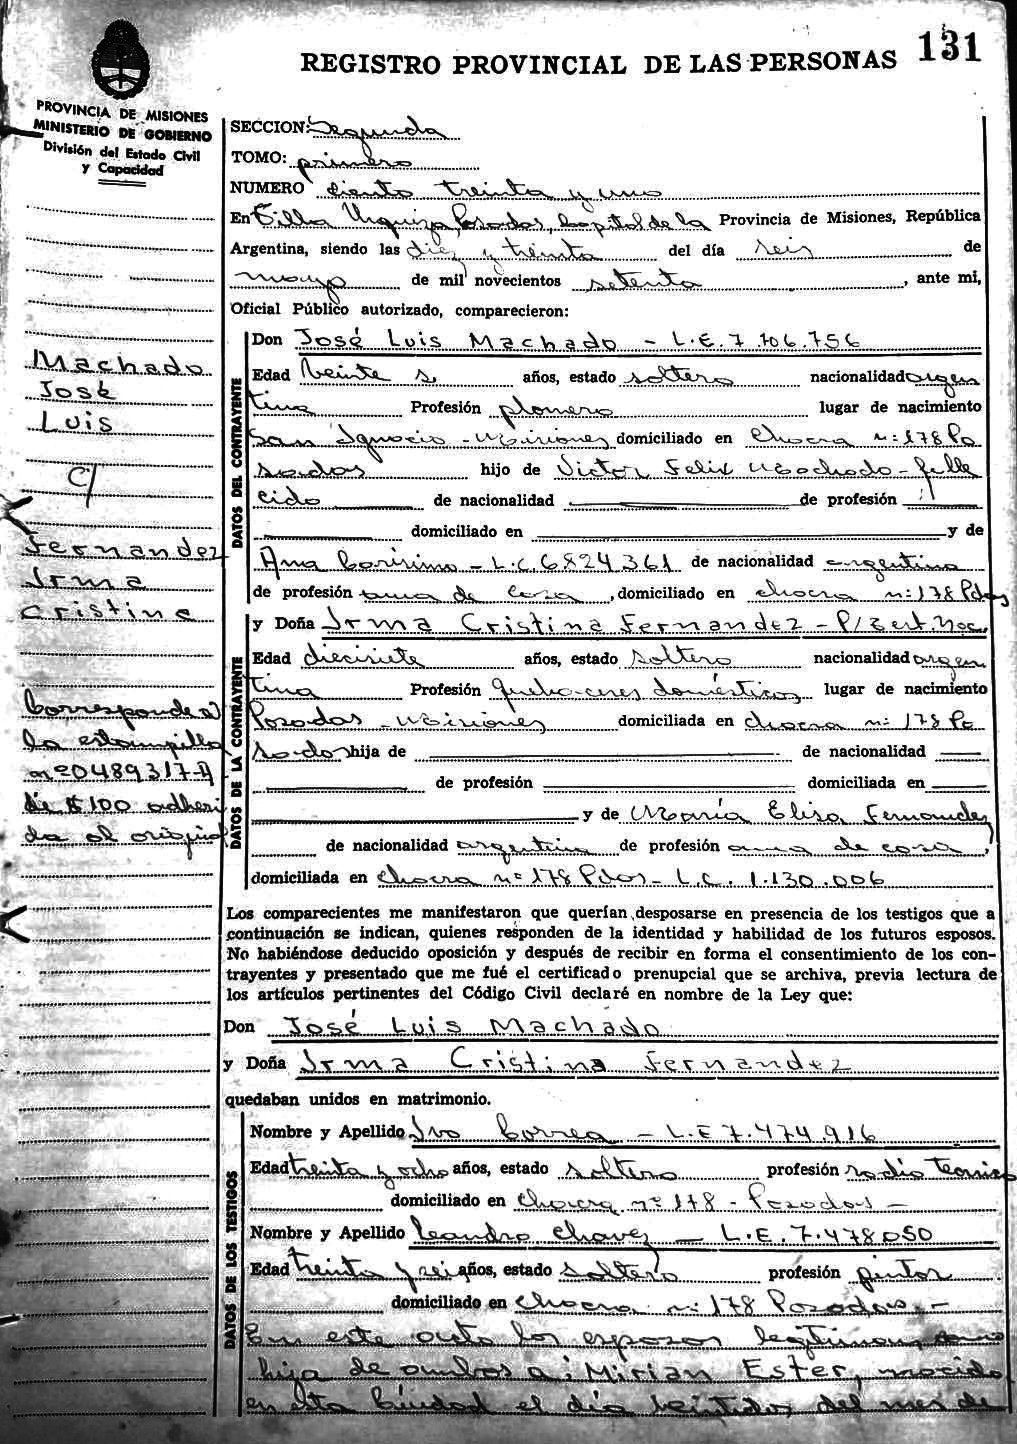 REGISTRO PROVINCIAL DE LAS PERSONAS 131
PROVINCIA DE MISIONES
MINISTERIO DE GOBIERNO
División del Estado Civil
y Capacidad
Machado
José
Luis
C/
Fernandez
Irma
Cristina
Corresponde a
la estampilla
nº 0489317-A
de $ 100 adheri
da al original
SECCION: Segunda
TOMO: primero
NUMERO ciento treinta y uno
En Villa Urquiza, Posadas, Capital de la Provincia de Misiones, República
Argentina, siendo las diez y treinta del día seis de
mayo de mil novecientos setenta, ante mi,
Oficial Público autorizado, comparecieron:
DATOS DEL CONTRAYENTE
Don José Luis Machado - L.E. 7.706.756
Edad veinte años, estado soltero nacionalidad argen
tina Profesión plomero lugar de nacimiento
San Ignacio - Misiones domiciliado en chacra n: 178 Po
sadas hijo de Victor Felix Machado - falle
cido de nacionalidad de profesión
domiciliado en y de
Ana - L.C. 6824361 de nacionalidad argentina
de profesión ama de casa, domiciliado en chacra n: 178 Pdas
DATOS DE LA CONTRAYENTE
y Doña Irma Cristina Fernandez - P/Cert. Nac.
Edad diecisiete años, estado soltera nacionalidad argen
tina Profesión quehaceres domésticos lugar de nacimiento
Posadas - Misiones domiciliada en chacra n: 178 Po
sadas hija de de nacionalidad
de profesión domiciliado en
y de María Elisa Fernandez
de nacionalidad argentina de profesión ama de casa,
domiciliada en chacra nº 178 Pdas - L.C. 1.130.006
Los comparecientes me manifestaron que querían desposarse en presencia de los testigos que a
continuación se indican, quienes responden de la identidad y habilidad de los futuros esposos.
No habiéndose deducido oposición y después de recibir en forma el consentimiento de los con-
trayentes y presentado que me fué el certificado prenupcial que se archiva, previa lectura de
los artículos pertinentes del Código Civil declaré en nombre de la Ley que:
Don José Luis Machado
y Doña Irma Cristina Fernandez
quedaban unidos en matrimonio.
DATOS DE LOS TESTIGOS
Nombre y Apellido Ivo Correa - L.E 7.474.916
Edad treinta y ocho años, estado soltero profesión radio tecnico
domiciliado en chacra nº 178 - Posadas -
Nombre y Apellido Leandro Chavez - L.E. 7.478.050
Edad treinta y seis años, estado soltero profesión pintor
domiciliado en chacra n: 178 Posadas -
En este acto los esposos legitiman como
hija de ambos a: Mirian Ester, nacida
en esta Ciudad el día veintidos del mes de